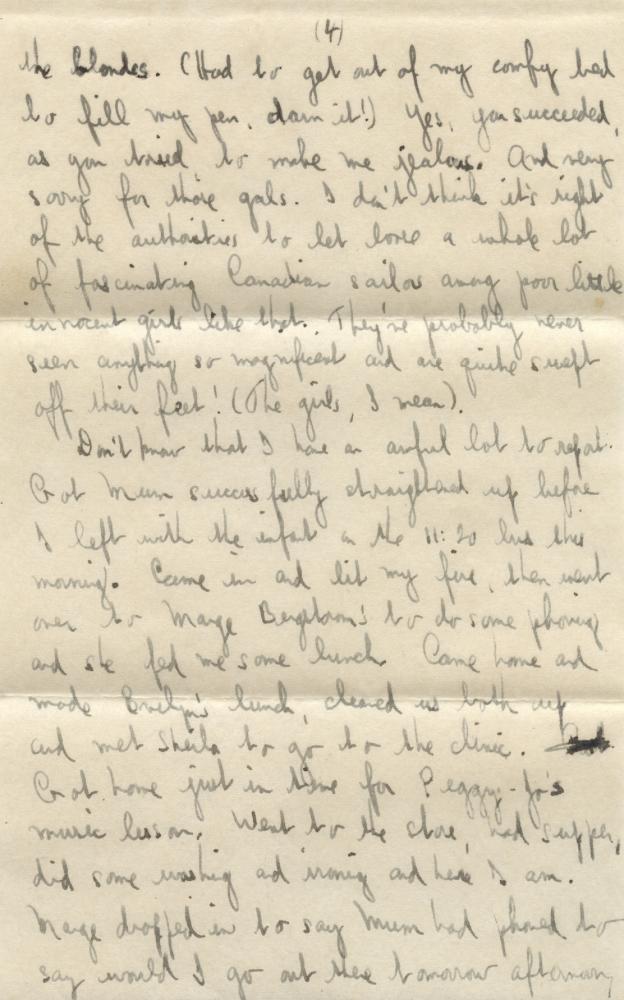 (4)
the blondes. (Had to get out of my comfy bed
to fill my pen, damn it!) Yes, you succeeded,
as you tried to make me jealous. And very
sorry for those gals. I don't think it's right
of the authorities to let loose a whole lot
of fascinating Canadian sailors among poor little
innocent girls like that. They've probably never
seen anything so magnificent and are quite swept
off their feet! (The girls, I mean).
Don't know that I have an awful lot to report.
Got Mum successfully straightened up before
I left with the infant on the 11:20 bus this
morning. Came in and lit my fire, then went
over to Marge Bergstrom's to do some phoning
and she fed me some lunch. Came home and
made Evelyn's lunch, cleaned us both up
and met Sheila to go to the clinic.
Got home just in time for Peggy-Jo's
music lesson. Went to the store, had supper,
did some washing and ironing and here I am.
Marge dropped in to say Mum had phoned to
say would I go out there tomorrow afternoon,